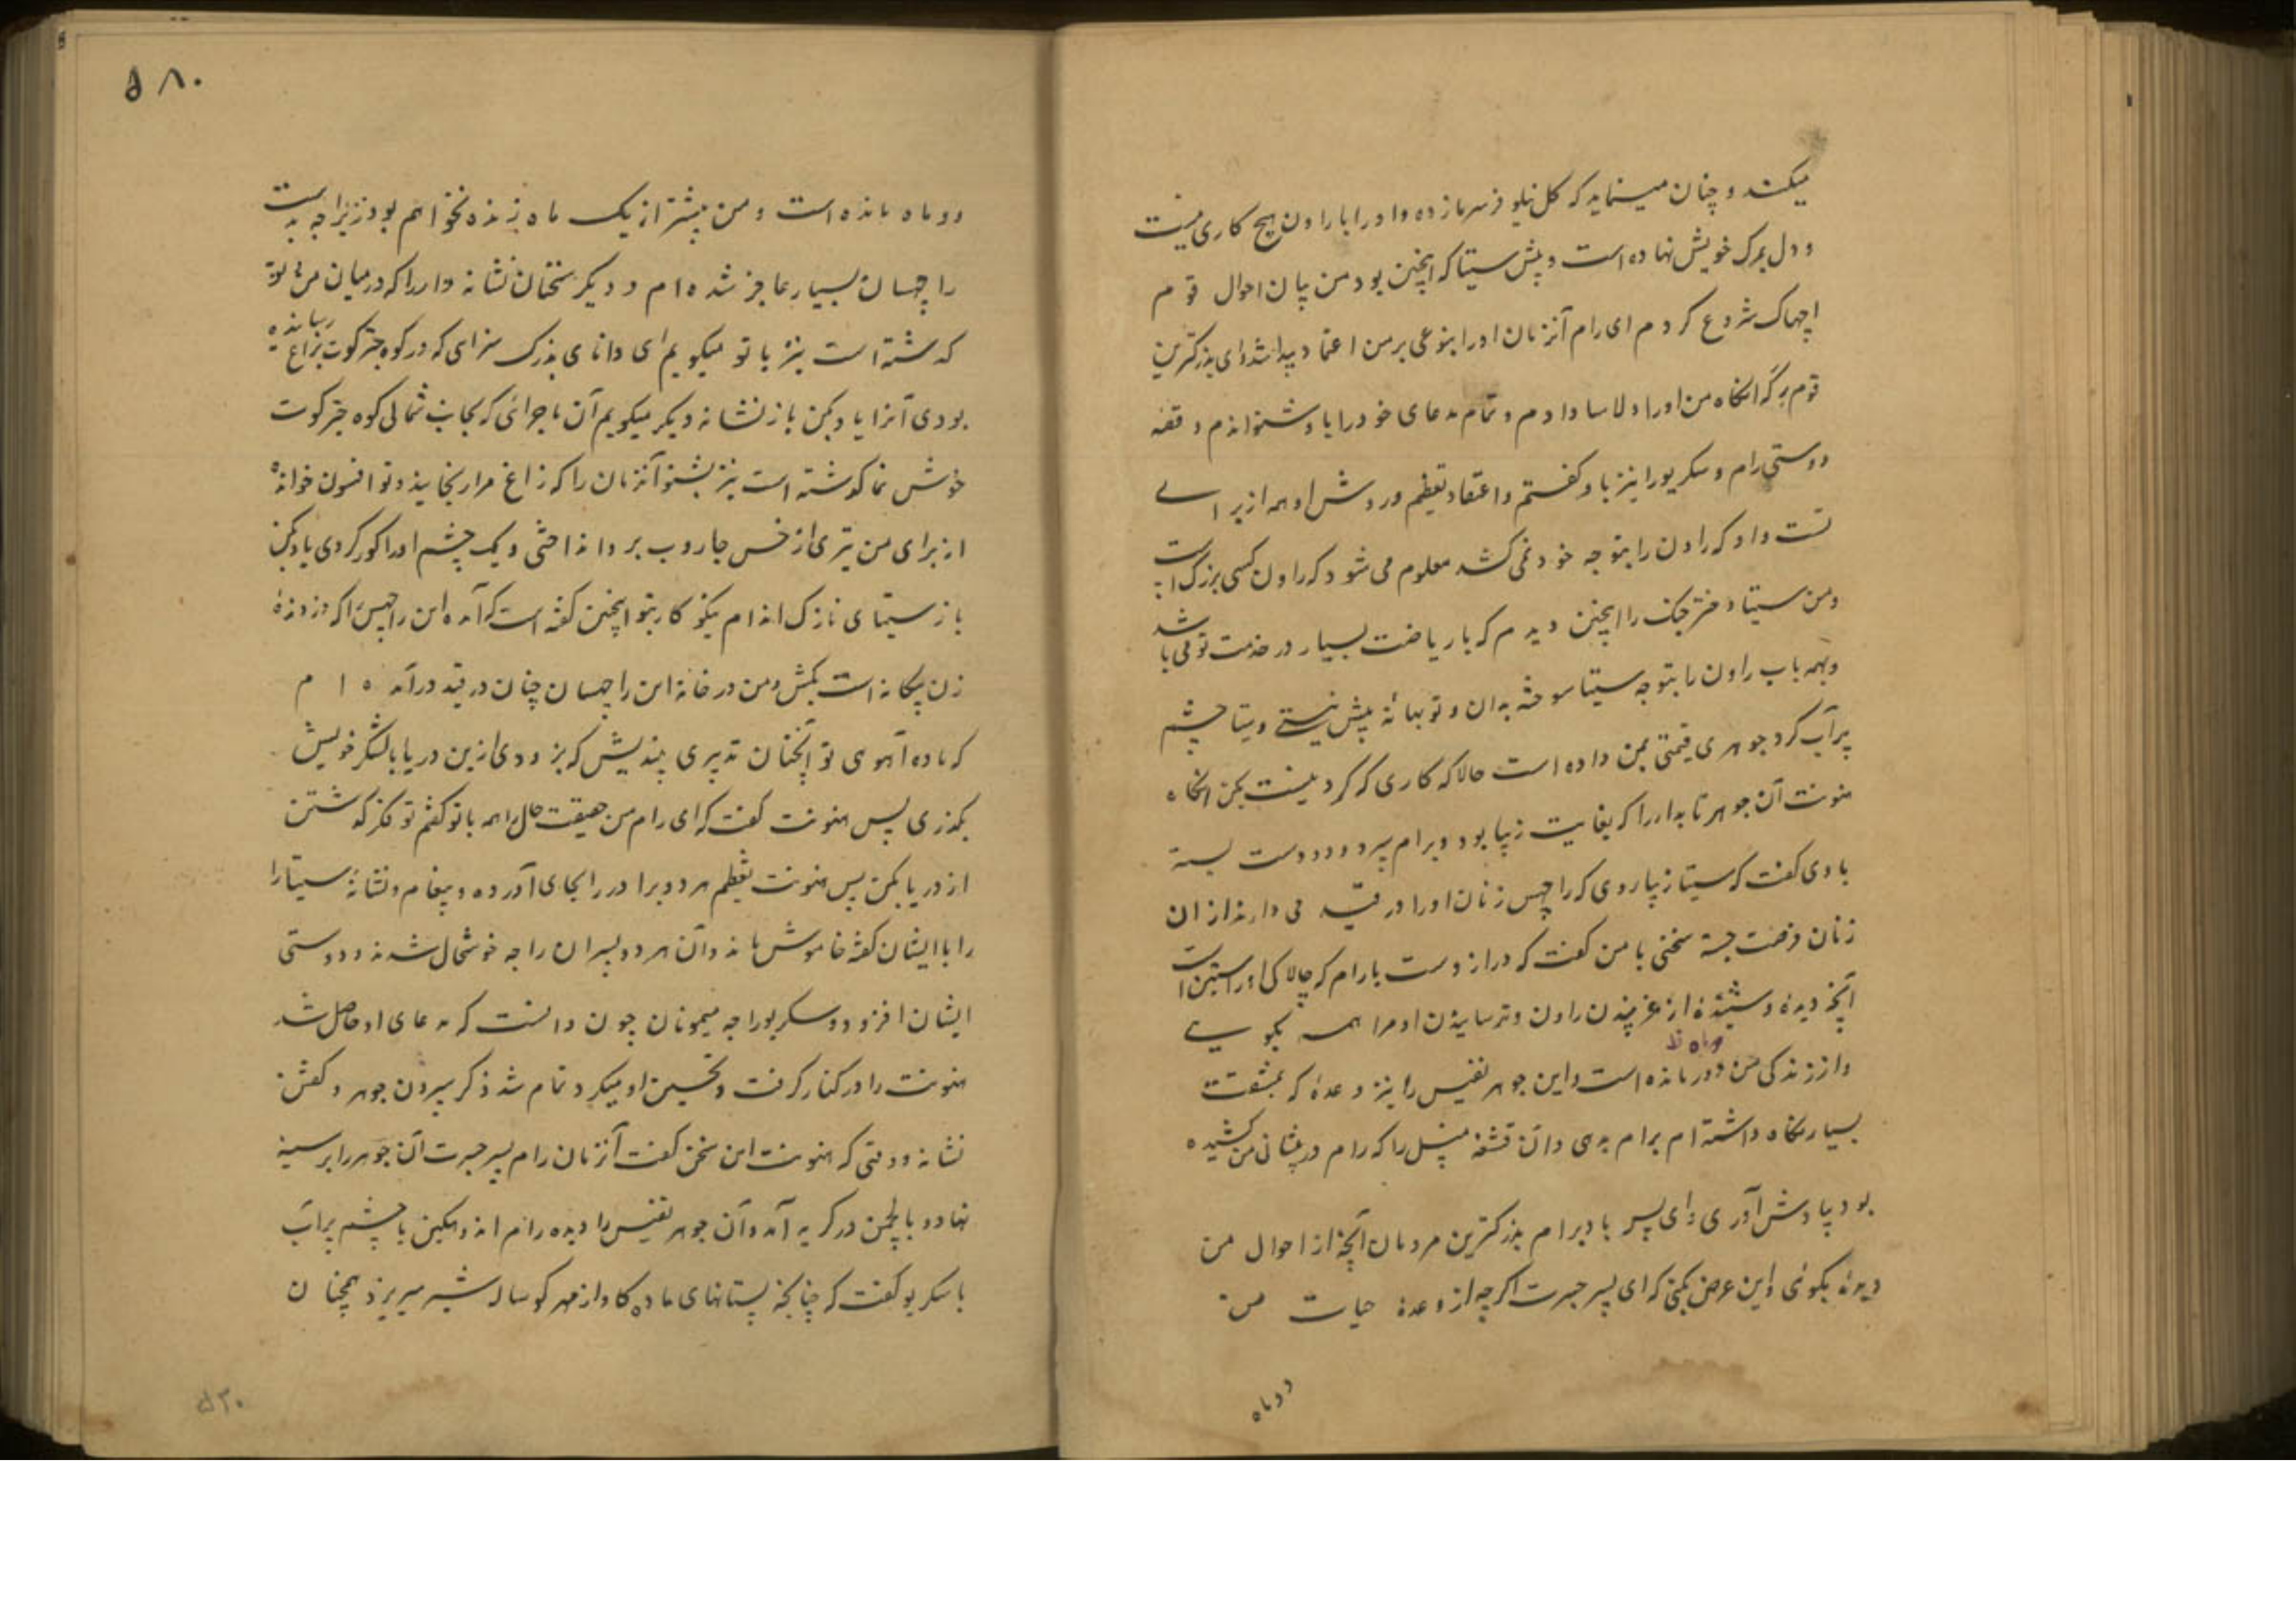 میکند و چنان مینماید که گل نیلوفر سرمازده و او را با راون هیچ کاری نیست
و دل بمرگ خویش نهاده است و پیش سیتا که اینچنین بود من بیان احوال قوم
اچهاک شروع کردم ای رام آنزمان او را بنوعی بر من اعتماد پیدا شد و ای بزرکترین
قوم رگهه انگاه من او را دلاسا دادم و تمام مدعای خود را باو شنوانیدم و قصه
دوستی رام و سکریو را نیز باو گفتم و اعتقاد و تعظیم و روش او همه از برای
تست و او که راون را بتوجه خود نمی کشد معلوم می شود که راون کسی بزرک است
و من سیتا دختر جنک را اینچنین دیدم که با ریاضت بسیار در خدمت تو می باشد
و بهمه باب راون را بتوجه سیتا سوخته بدان و تو بهانه بیش نیستی و سیتا چشم
پر آب کرد جوهری قیمتی بمن داده است حالا که کاری که کردنیست بکن انگاه
هنونت آن جوهر تابدار را که بغایت زیبا بود و برام سپرد و دو دست بسته
با وی گفت که سیتا زیبا روی که راچهس زنان او را در قید می دارند از ان
زنان فرصت جسته سخنی با من گفت که دراز دست بارام که چالاکی او راستین است
آنچه دیده و شنیده از غرنیدن راون و ترسانیدن او مرا همه بگویی
دو ماه ظ
و از زندگی من دور مانده است و این جوهر نفیس را نیز و عده که بمشقت
بسیار نگاه داشته ام برام بدهی و آن قشقه منسل را که رام در پیشانی من کشیده
بود بیادش آوری و ای پسر باد برام بزرکترین مردمان آنچه از احوال من
دیده بگوئی و این عرض بکنی که ای پسر جسرت اگرچه از وعده حیات من
دو ماه
۵۸۰
دو ماه مانده است و من بیشتر از یک ماه زنده نخواهم بود زیراچه بدست
راچهسان بسیار عاجز شده ام و دیگر سخنان نشانه دار را که در میان من و تو
گذشته است نیز با تو میگویم ای دانای بزرک سزای که در کوه چترکوت بزاغ رسانیده
بودی آنرا یاد بکن باز نشانه دیگر میگویم آن ماجرائی که بجانب شمالی کوه چترکوت
خوش نما گذشته است نیز بشنو آنزمان را که زاغ مرا رنجانید و تو افسون خوانده
از برای من تیری از خس جاروب بر وانداختی و یک چشم او را کور کردی یاد بکن
باز سیتای نازک اندام نیکو کار بتو اینچنین گفته است که آمده این راچهس را که دزد نده
زن بیگانه است بکش و من در خانه این راچهسان چنان در قید در آمده ام
که ماده آهوی تو آنچنان تدبیری بیندیش که بزودی ازین دریا با لشکر خویش
بگذری پس هنونت گفت که ای رام من حقیقت حال را همه با تو گفتم تو فکر گذشتن
از دریا بکن پس هنونت تعظیم هر دو برادر را بجای آورده و پیغام و نشانه سیتا را
را با ایشان گفته خاموش ماند و آن هر دو پسران راجه خوشحال شدند و دوستی
ایشان افزود و سکریو راجه میمونان چون دانست که مدعای او حاصل شد
هنونت را در کنار گرفت و تحسین او میکرد تمام شد ذکر سپردن جوهر و گفتن
نشانه و وقتی که هنونت این سخن گفت آنزمان رام پسر جسرت آن جوهر را بر سینه
نهاد و با لچمن در گریه آمد و آن جوهر نفیس را دیده رام اندوهگین با چشم پر آب
با سکریو گفت که چنانکه پستانهای ماده گاو از مهر گوساله شیر میریزد همچنان
۵۳۰